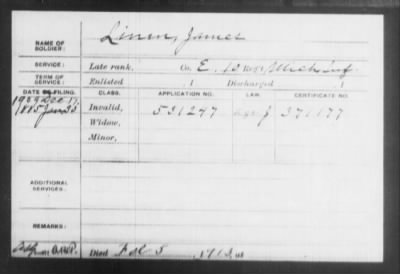 NAME OF SOLDIER: Linen, James
SERVICE: Late rank, Co. E, 10 Reg't Mich Inf.
TERM OF SERVICE: Enlisted , 1 Discharged , 1
DATE OF FILING. CLASS. APPLICATION NO. LAW. CERTIFICATE NO.
1885 Jan Invalid, 531297 371177
Widow,
Minor,
ADDITIONAL SERVICES:
REMARKS:
Died 5 191 at